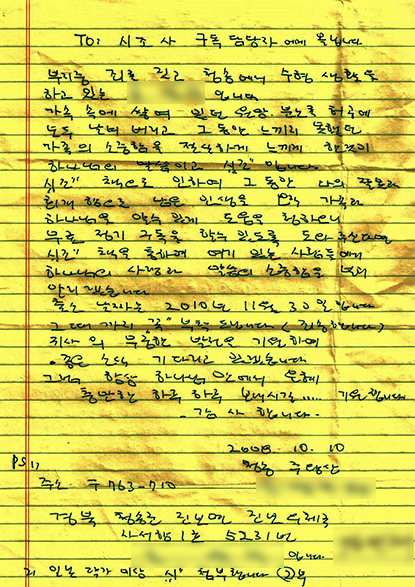 TO: 시조사 구독 담당자 에게 올립니다
부끄러운 죄를 짓고 청송에서 수형 생활을
하고 있는 입니다
가슴 속에 쌓여 있던 원망. 분노를 허공에
모두 날려 버리고 그 동안 느끼지 못했던
가족의 소중함을 절실하게 느끼게 한것이
하나님의 말씀이고 "시조" 입니다.
"시조" 책으로 인하여 그 동안 나의 잘못과
회개 함으로 남은 인생을 가족과
하나님을 알수 있게 도움을 청하오니
무료 정기 구독을 할수 있도록 도와 주신다면
"시조" 책을 통하여 여기 있는 사람들에게
하나님의 사랑과 말씀의 소중함을
출소 날짜는 2010년 11월 30일 입니다
그때 까지 "꼭" 부탁 드립니다 (죄송합니다)
시조사의 무궁한 발전을 기원하며
좋은 소식 기다리고 있겠습니다
그럼 항상 하나님 안에서 은혜
충만한 하루 하루 보내시길..... 기원합니다
- 감사 합니다.
2008. 10. 10
청송 주왕산
PS 1)
주소 우 763-710
경북 청송군 진보면 진보우체국
사서함 1호 5231번
입니다
2) 일본 작가 미상 "시" 첨부합니다 ②부